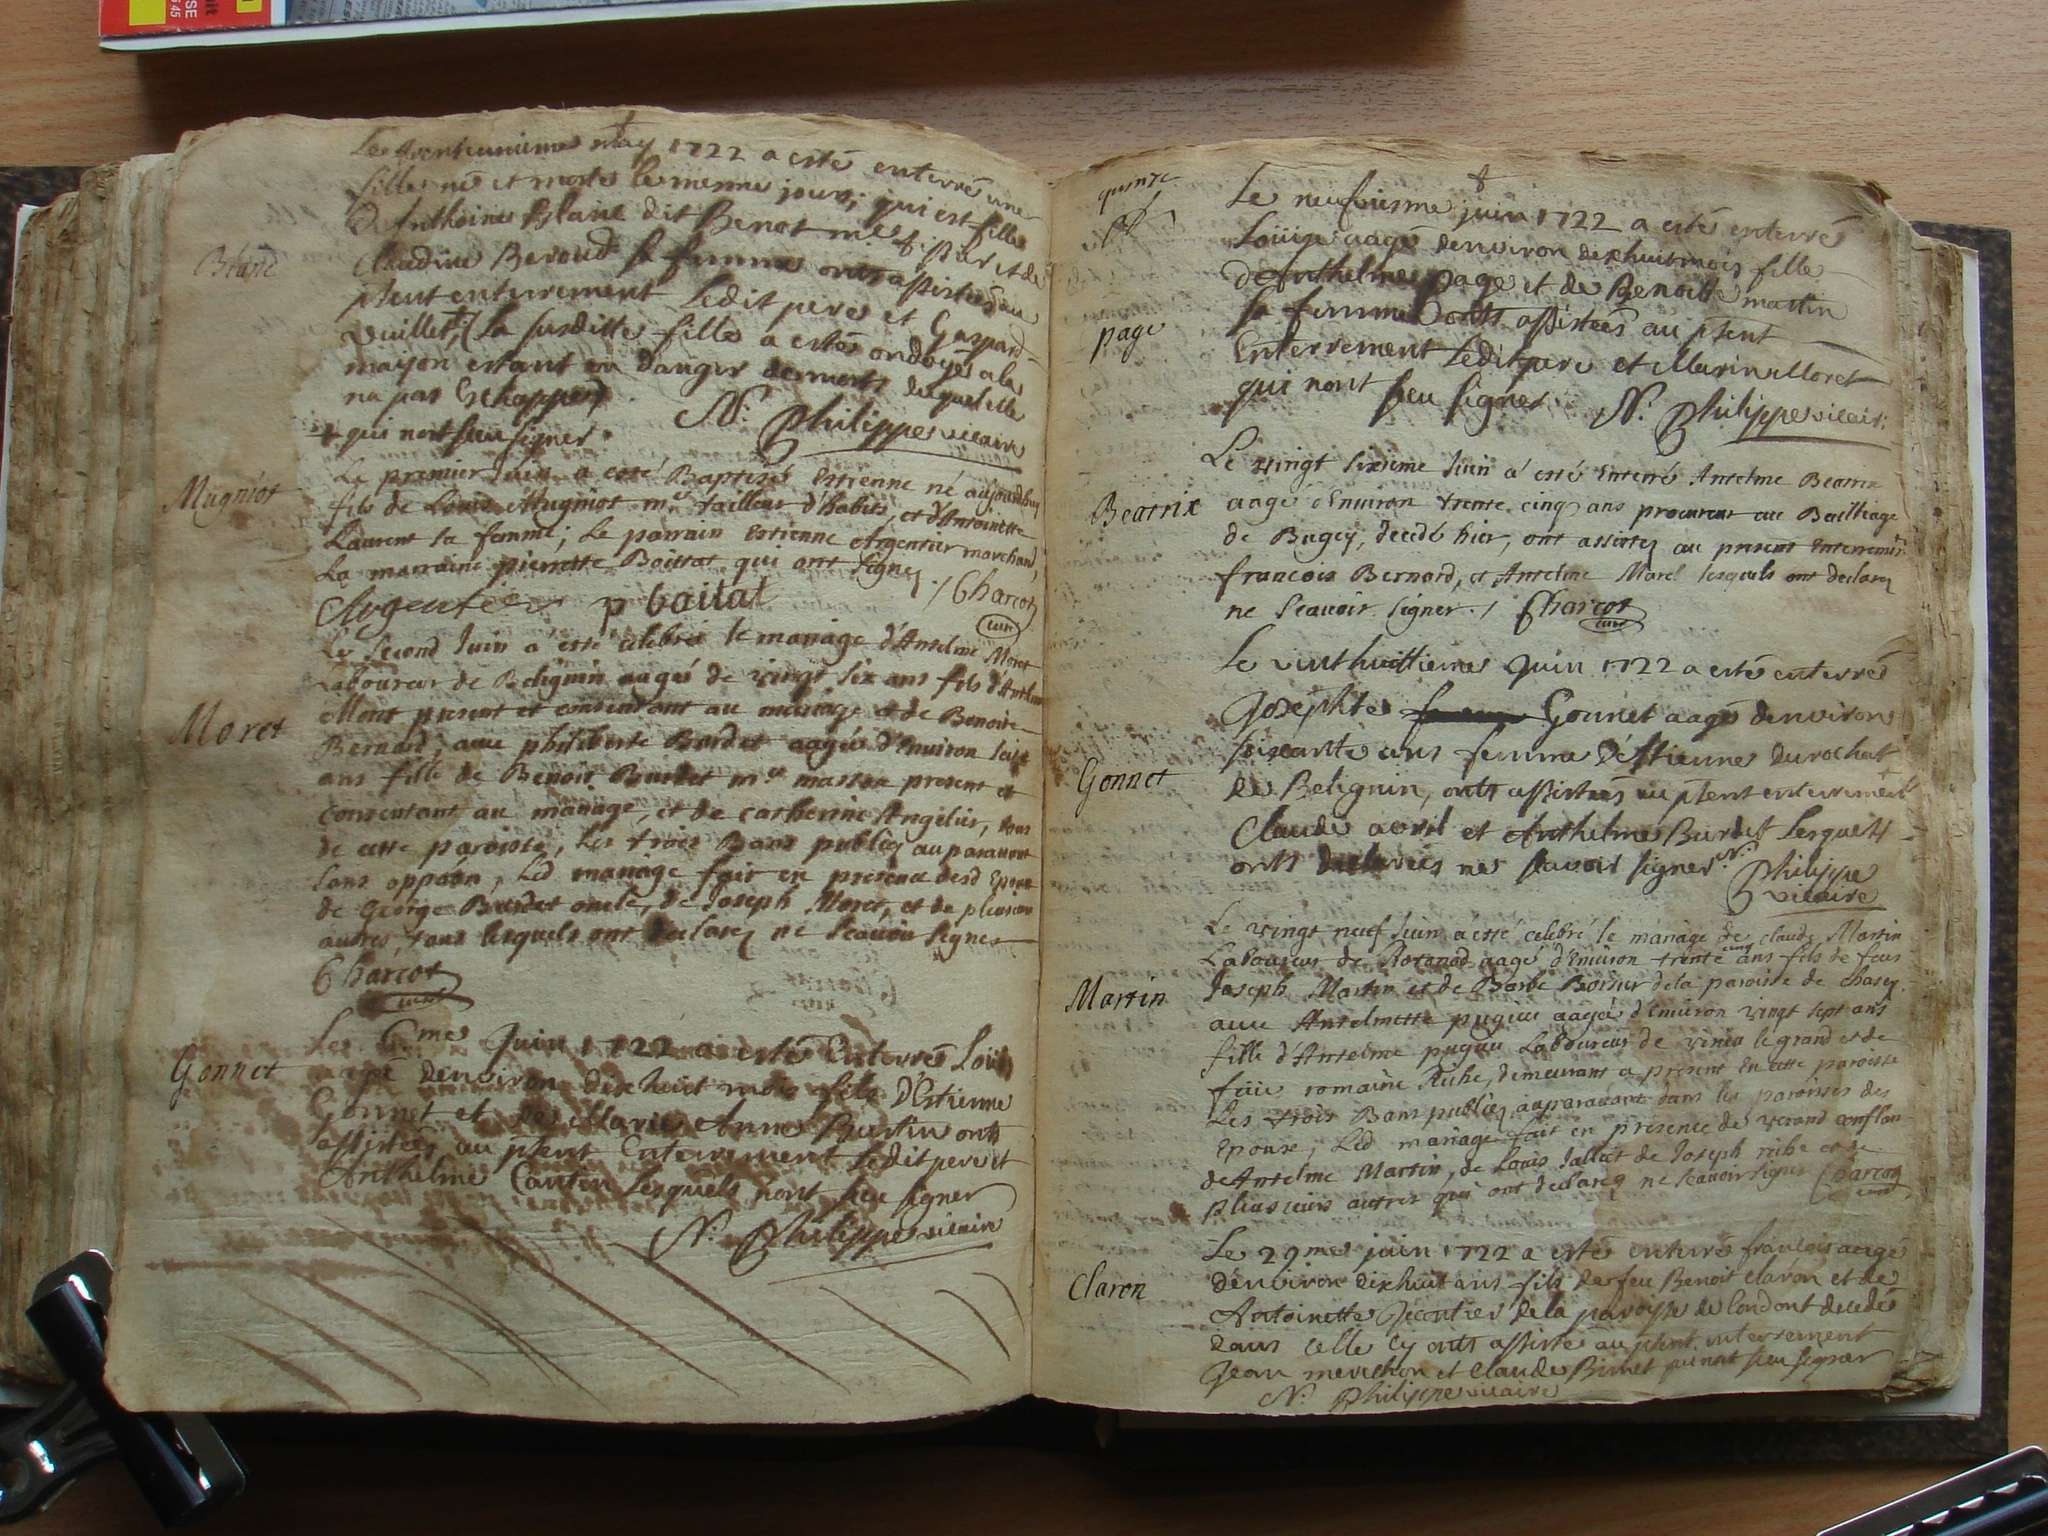 Le trenteunieme may 1722 a esté enterré une
fille né et morte le mesme jour, qui est fille
d'Anthoine Blanc dit Benot me
Claudine Beroud sa femme onts assistées au
pñent enterrement ledit pere et Gaspard
Vuillet, (la susditte fille a estée ondoyé a la
maison estant en danger de mort duquel elle
na pas Echappée)
+ qui nont sceu signer. N: Philippe vicaire
Blanc
Le premier Juin a esté Baptisé Estienne né aujourdhuy
fils de Louis Mugniot me tailleur d'habits, et d'Antoinette
Laurent sa femme; Le parrain Estienne Argentier marchand,
La marraine pierrette Boittat qui ont signez / Charcot
curé
Argentier p boitat
Mugniot
Le second Juin a esté celebré le mariage d'Antelme Moret
Laboureur de Belignin aagé de vingt six ans fils d'Antelme
Moret present et consentant au mariage et de Benoite
Bernard; avec philiberte Burdet aagée d'Environ seize
ans fille de Benoit Burdet me masson present et
consentant au mariage, et de catherine Angelier, tous
de cette paroisse, les trois Bans publiez auparavant
sans oppoôn, Led mariage fait en presence desd Epoux
de George Burdet oncle, de Joseph Moret, et de plusieurs
autres, tous lesquels ont declarez ne scavoir signer
Charcot
curé
Moret
Le 6me Juin 1722 a estés Enterrés Loüis
aagé denviron dixhuit mois fils d'Estienne
Gonnet et de Marie Anne Burtin onts
assistées au pñent Enterrement ledit pere et
Anthelme Cantin lesquels nont sceu signer
N: Philippe vicaire
Gonnet
quinze
Le neufviesme juin 1722 a estés enterré
Loüise aagé denviron dixhuit mois fille
d'Anthelme page et de Benoitte martin
sa femme onts assistées au pñent
Enterrement ledit pere et Marin Moret
qui nont sceu signer. N. Philippe vicair:
page
Le vingt sixieme Juin a esté Enterré Antelme Beatrix
aagé d'Environ trente cinq ans procureur au Bailliage
de Bugey, decedé hier, ont assistez au present Enterrement
francois Bernard, et Antelme Morel lesquels ont declarez
ne scavoir signer. / Charcot
curé
Beatrix
Le vinthuittieme Juin 1722 a estés enterrés
Josephte Gonnet aagé denviron
soixante ans femme d'Estienne Durochat
de Belignin, onts assistées au pñent enterrement
Claude avril et Anthelme Burdet lesquels
onts declarées ne scavoir signer N. Philippe
vicaire
Gonnet
Le vingt neuf Juin a esté celebré le mariage de claude Martin
Laboureur de Rotonod aagé d'Environ trente cinq ans fils de feus
Joseph Martin et de Barbe Boisur de la paroisse de chasey.
avec Antelmette pugieu aagée d'Environ vingt sept ans
fille d'Antelme pugieu Laboureur de vineu le grand et de
feüe romaine Riche, demeurant a present En cette paroisse
Les trois Bans publiez auparavant dans les paroisses des
Epoux, Led mariage fait en presence de
de Antelme Martin, de Louis Jallet de Joseph riche et de
plusieurs autres qui ont declarez ne scavoir signer Charcot
curé
Martin
Le 29me juin 1722 a estés enterré francois aagé
d'environ dixhuit ans fils de feu Benoit Claron et de
Antoinette de la paroisse de Condont decedés
dans celle cy onts assisté au pñent enterrement
Jean merichon et Claude Binet qui nont sceu signer
N: Philippe vicaire
Claron